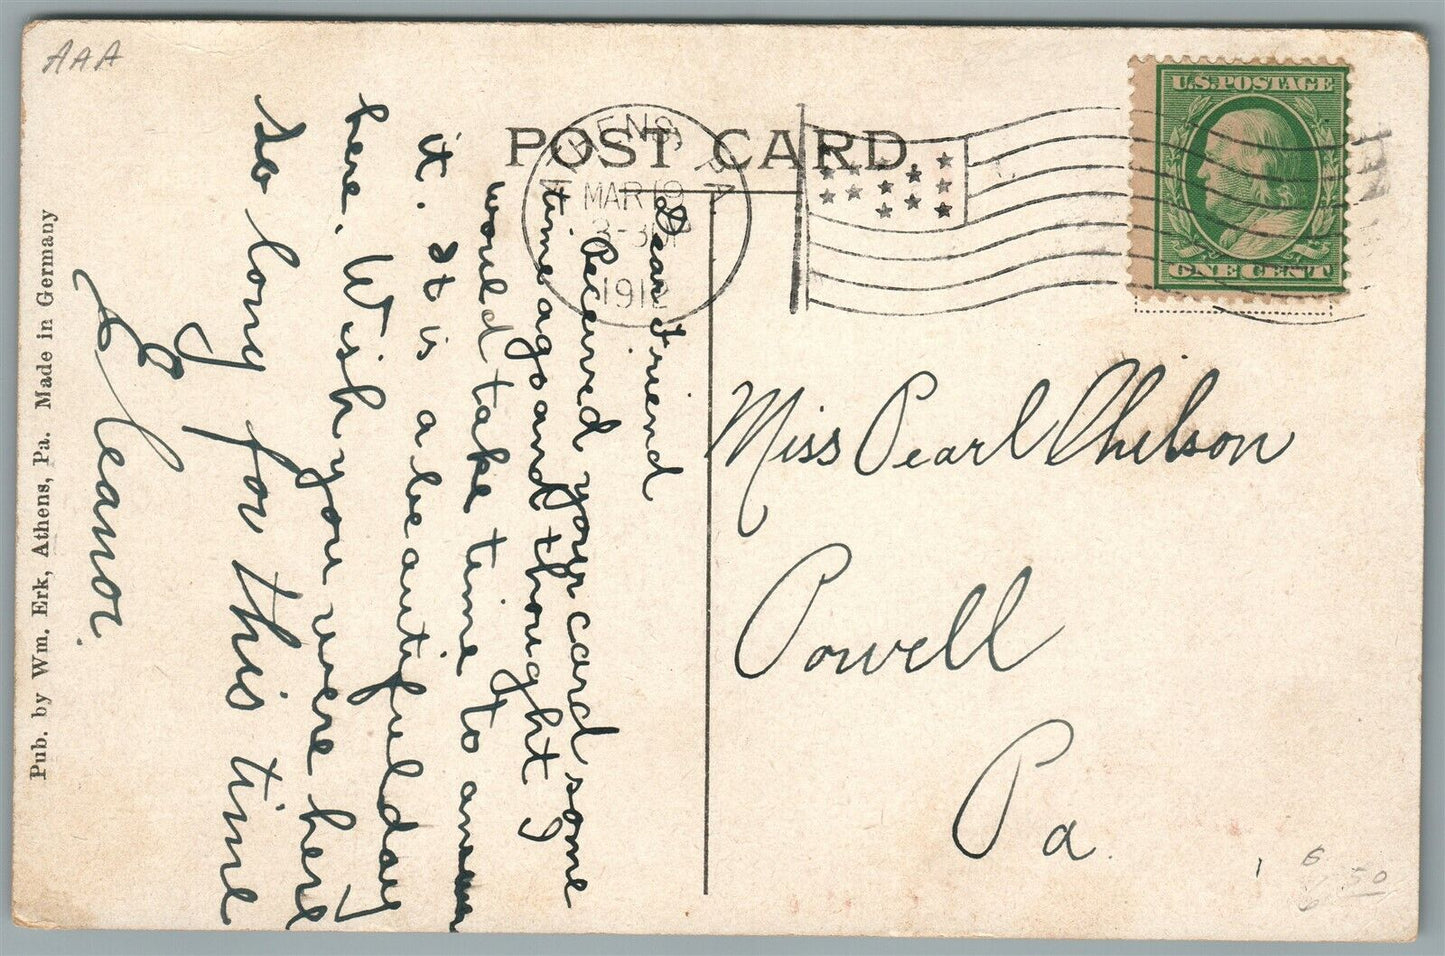 AAA
POST CARD
ATHENS PA
MAR 19
3-3 PM
1912
U.S.POSTAGE
ONE CENT
Dear Friend
Recieved your card some
time ago and thought I
would take time to answer
it. It is a beautiful day
here. Wish you were here
So long for this time
Eleanor.
Miss Pearl Chilson
Powell
Pa.
Pub. by Wm. Erk, Athens, Pa. Made in Germany
6 50